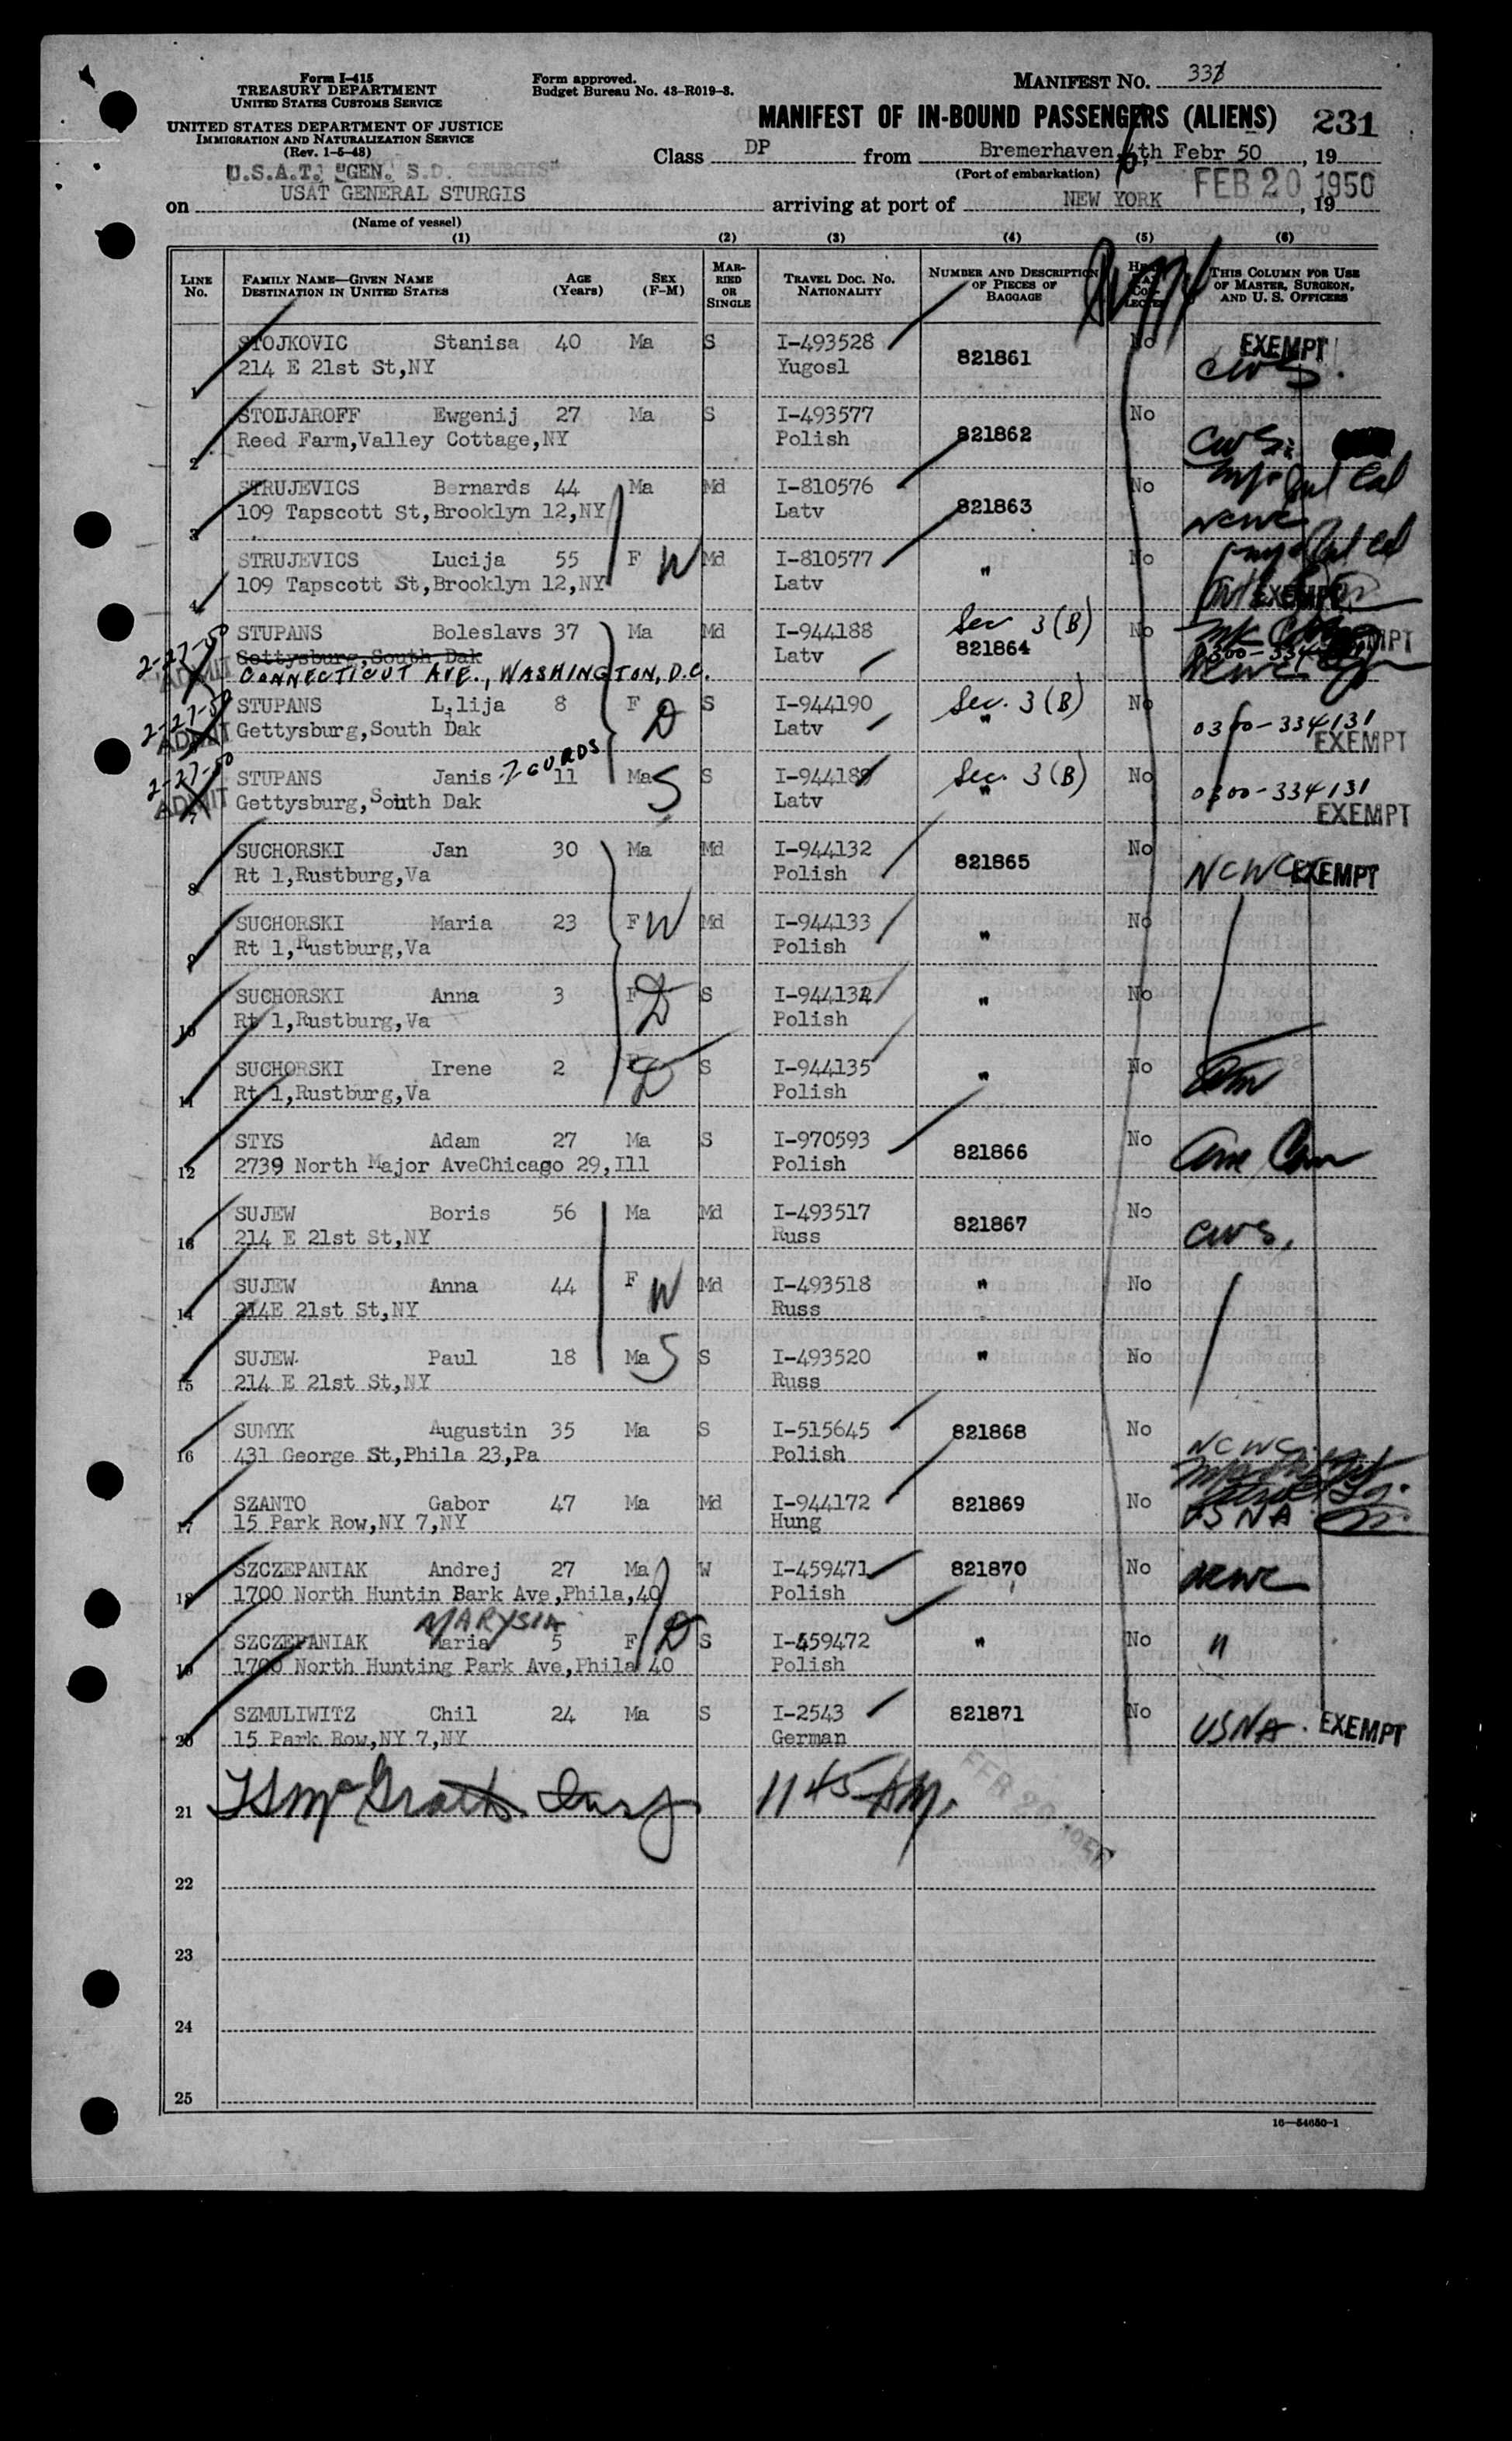 Form I-415
TREASURY DEPARTMENT
UNITED STATES CUSTOMS SERVICE
UNITED STATES DEPARTMENT OF JUSTICE
IMMIGRATION AND NATURALIZATION SERVICE
(Rev. 1-5-48)
Form approved.
Budget Bureau No. 43-R019-3.
MANIFEST NO. 337
MANIFEST OF IN-BOUND PASSENGERS (ALIENS) 231
Class DP from Bremerhaven, th Febr 50, 19
(Port of embarkation)
U.S.A.T. "GEN. S.D. STURGIS"
on USAT GENERAL STURGIS arriving at port of NEW YORK FEB 20 1950, 19
(Name of vessel)
(1) (2) (3) (4) (5) (6)
LINE NO. FAMILY NAME—GIVEN NAME DESTINATION IN UNITED STATES AGE (Years) SEX (F-M) MARRIED OR SINGLE TRAVEL DOC. NO. NATIONALITY NUMBER AND DESCRIPTION OF PIECES OF BAGGAGE THIS COLUMN FOR USE OF MASTER, SURGEON, AND U. S. OFFICERS
STOJKOVIC Stanisa 40 Ma S I-493528 821861 No EXEMPT
1 214 E 21st St,NY Yugosl CWS.
STOLJAROFF Ewgenij 27 Ma S I-493577 821862 No
2 Reed Farm,Valley Cottage,NY Polish CWS.
STRUJEVICS Bernards 44 Ma Md I-810576 821863 No
3 109 Tapscott St,Brooklyn 12,NY Latv NCWC
STRUJEVICS Lucija 55 F W Md I-810577 " No
4 109 Tapscott St,Brooklyn 12,NY Latv EXEMPT
2-27-50 STUPANS Boleslavs 37 Ma Md I-944188 Sec 3(B) 821864 No
ADMIT Gettysburg,South Dak Latv 0300-334131 EXEMPT
CONNECTICUT AVE., WASHINGTON, D.C. NCWC
2-27-50 STUPANS Lilija 8 F D S I-944190 Sec. 3(B) " No
ADMIT Gettysburg,South Dak Latv 0300-334131 EXEMPT
2-27-50 STUPANS Janis ZGURDS 11 Ma S S I-944189 Sec. 3(B) " No
ADMIT Gettysburg,South Dak Latv 0300-334131 EXEMPT
SUCHORSKI Jan 30 Ma Md I-944132 821865 No
8 Rt 1,Rustburg,Va Polish NCWC EXEMPT
SUCHORSKI Maria 23 F W Md I-944133 " No
9 Rt 1,Rustburg,Va Polish
SUCHORSKI Anna 3 F D S I-944134 " No
10 Rt 1,Rustburg,Va Polish
SUCHORSKI Irene 2 F D S I-944135 " No
11 Rt 1,Rustburg,Va Polish
STYS Adam 27 Ma S I-970593 821866 No
12 2739 North Major AveChicago 29,Ill Polish
SUJEW Boris 56 Ma Md I-493517 821867 No
13 214 E 21st St,NY Russ CWS,
SUJEW Anna 44 F W Md I-493518 " No
14 214E 21st St,NY Russ
SUJEW Paul 18 Ma S S I-493520 " No
15 214 E 21st St,NY Russ
SUMYK Augustin 35 Ma S I-515645 821868 No
16 431 George St,Phila 23,Pa Polish NCWC
SZANTO Gabor 47 Ma Md I-944172 821869 No
17 15 Park Row,NY 7,NY Hung USNA
SZCZEPANIAK Andrej 27 Ma W I-459471 821870 No
18 1700 North Huntin Bark Ave,Phila,40 Polish NCWC
MARYSIA
SZCZEPANIAK Maria 5 F D S I-459472 " No "
19 1700 North Hunting Park Ave,Phila 40 Polish
SZMULIWITZ Chil 24 Ma S I-2543 821871 No
20 15 Park Row,NY 7,NY German USNA. EXEMPT
21 1145 AM. FEB 20
22
23
24
25
16—54650-1